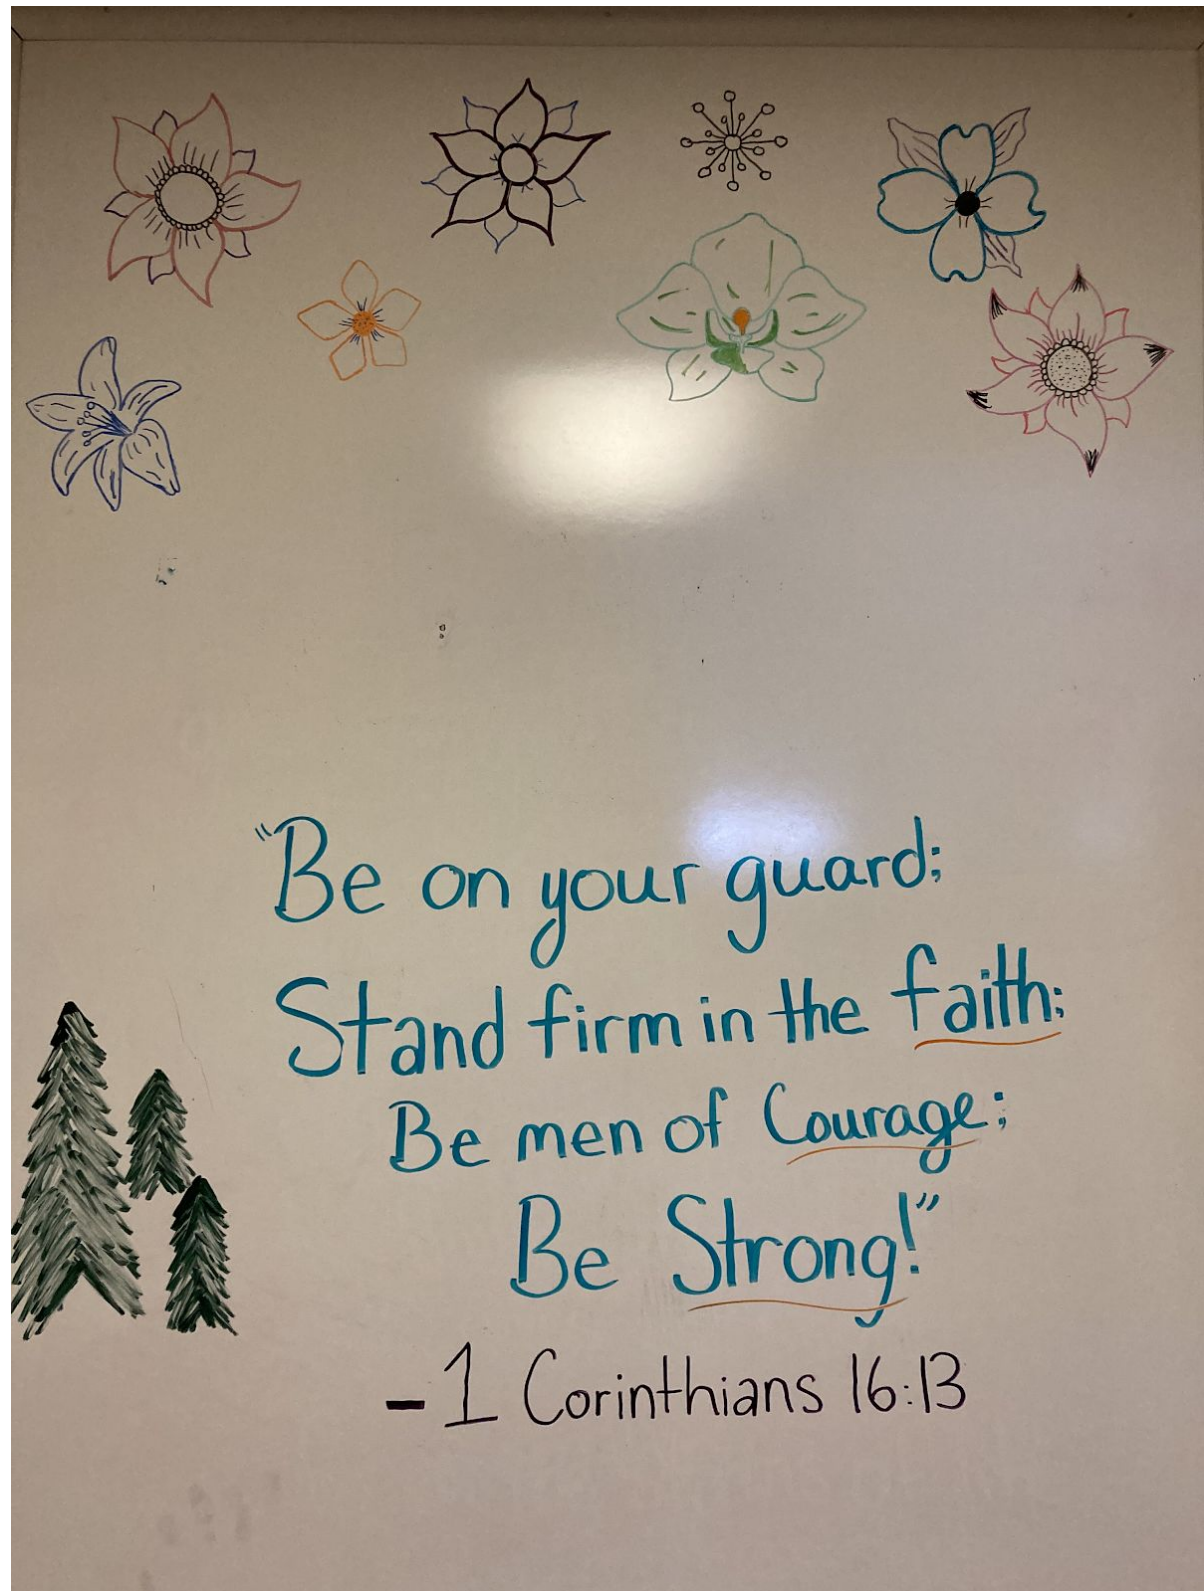 "Be on your guard;
Stand firm in the faith;
Be men of Courage;
Be Strong!"
- 1 Corinthians 16:13